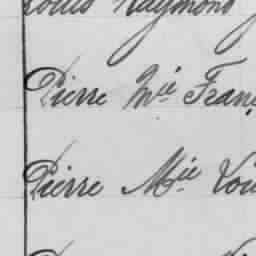 Louis Raymond
Pierre Mie Franç
Pierre Mie Loui